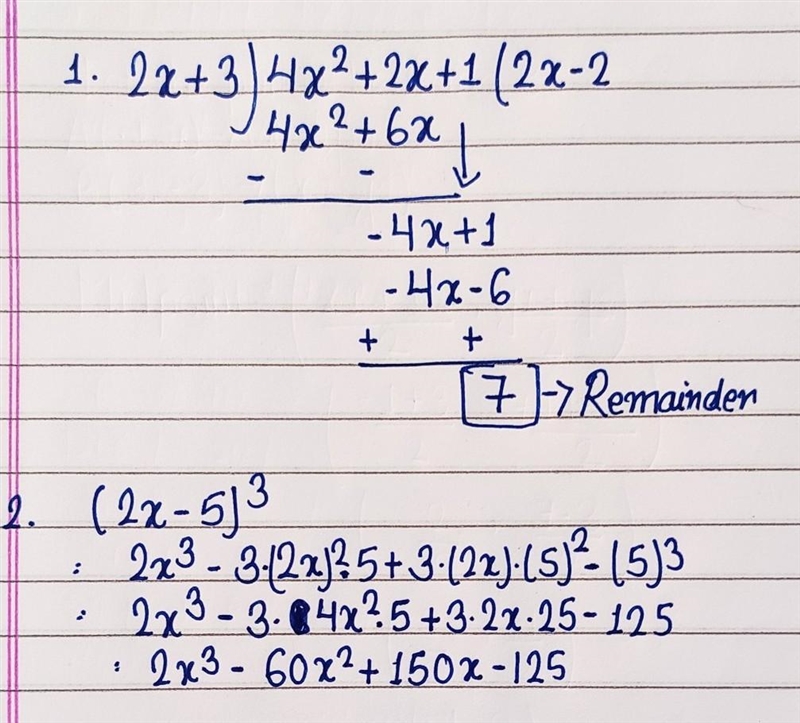 1. 2x+3)4x²+2x+1(2x-2
4x²+6x ↓
- -
-4x+1
-4x-6
+ +
7 → Remainder
2. (2x-5)³
: 2x³ - 3·(2x)²·5+3·(2x)·(5)²-(5)³
: 2x³ - 3·4x²·5+3·2x·25-125
: 2x³ - 60x²+150x-125